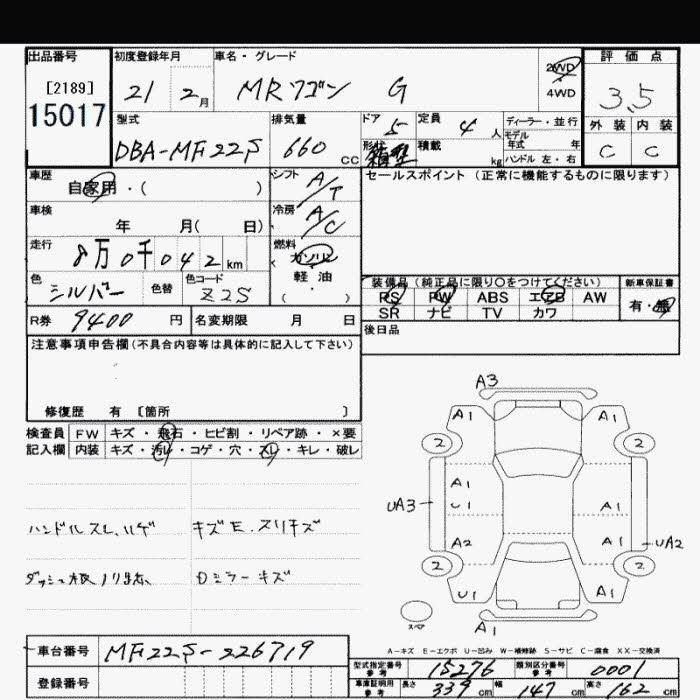 出品番号 初度登録年月 車名・グレード 評価点
[2189] 21 2月 MRワゴン G 2WD 3.5
15017 4WD
型式 排気量 ドア 定員 ディーラー・並行 外装 内装
DBA-MF22S 660 CC 5 4人 モデル年式 年 C C
形状 箱型 積載 kg ハンドル 左・右
車歴 自家用・( ) シフト A/T セールスポイント (正常に機能するものに限ります)
車検 年 月( 日) 冷房 A/C
走行 8万0千042km 燃料 ガソリン
色 シルバー 色替 色コード Z2S 軽・油
( )
装備品(純正品に限り○をつけてください) 新車保証書
PS PW ABS エアB AW 有・無
SR ナビ TV カワ
R券 9400円 名変期限 月 日 後日品
注意事項申告欄(不具合内容等は具体的に記入して下さい)
修復歴 有 [箇所 ]
検査員 FW キズ・飛石・ヒビ割・リペア跡・×要
記入欄 内装 キズ・汚レ・コゲ・穴・スレ・キレ・破レ
ハンドルスレ、ハゲ キズE.スリキズ
ダッシュ板 Dミラーキズ
A3
A1 A1
2 2
A1
UA3 U1 A1
A2 A1 UA2
2 2
U1 A1
スペア A1
A-キズ E-エクボ U-凹み W-補修跡 S-サビ C-腐食 XX-交換済
車台番号 MF22S-226719
型式指定番号 参考 15276 類別区分番号 参考 0001
登録番号
車庫証明用 参考 長さ 339cm 幅 147cm 高さ 162cm